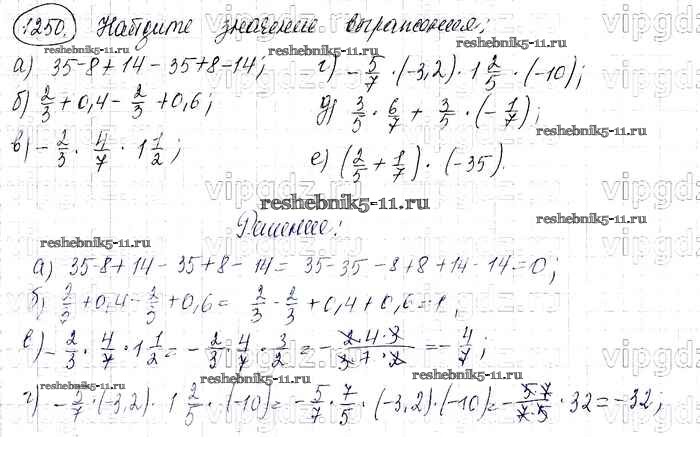 1250. Найдите значение выражения;
а) 35-8+14-35+8-14;
г) -5/7·(-3,2)·1 2/5·(-10);
б) 2/3+0,4-2/3+0,6;
д) 3/5·6/7+3/5·(-1/7);
в) -2/3·4/7·1 1/2;
е) (2/5+1/7)·(-35).
Решение:
а) 35-8+14-35+8-14=35-35-8+8+14-14=0;
б) 2/3+0,4-2/3+0,6=2/3-2/3+0,4+0,6=1;
в) -2/3·4/7·1 1/2=-2/3·4/7·3/2=-2·4·3/3·7·2=-4/7;
г) -5/7·(-3,2)·1 2/5·(-10)=-5/7·7/5·(-3,2)·(-10)=-5·7/7·5·32=-32;
reshebnik5-11.ru
vipgdz.ru